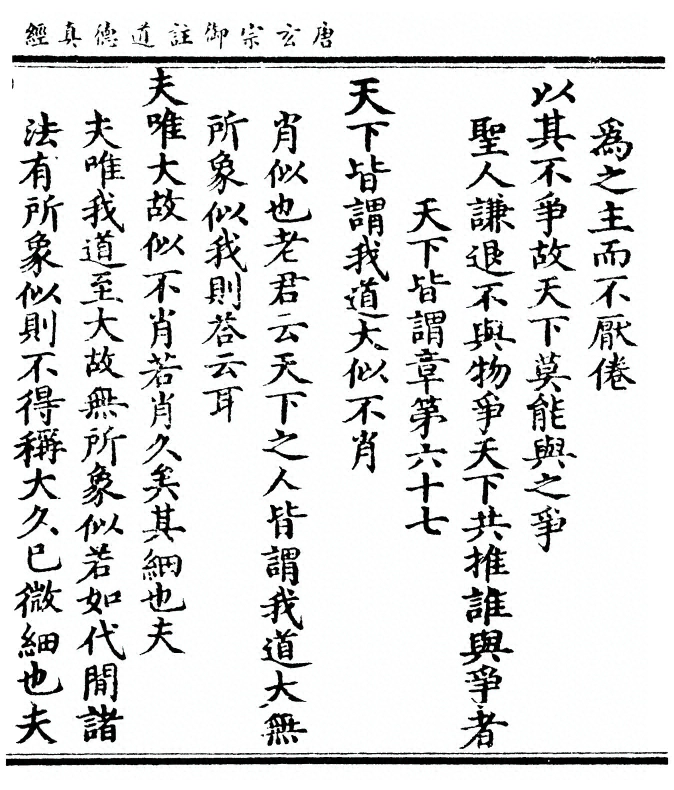 唐玄宗御註道德真經
爲之主而不厭倦
以其不爭故天下莫能與之爭
聖人謙退不與物爭天下共推誰與爭者
天下皆謂章第六十七
天下皆謂我道大似不肖
肖似也老君云天下之人皆謂我道大無
所象似我則荅云耳
夫唯大故似不肖若肖久矣其細也夫
夫唯我道至大故無所象似若如代間諸
法有所象似則不得稱大久已微細也夫